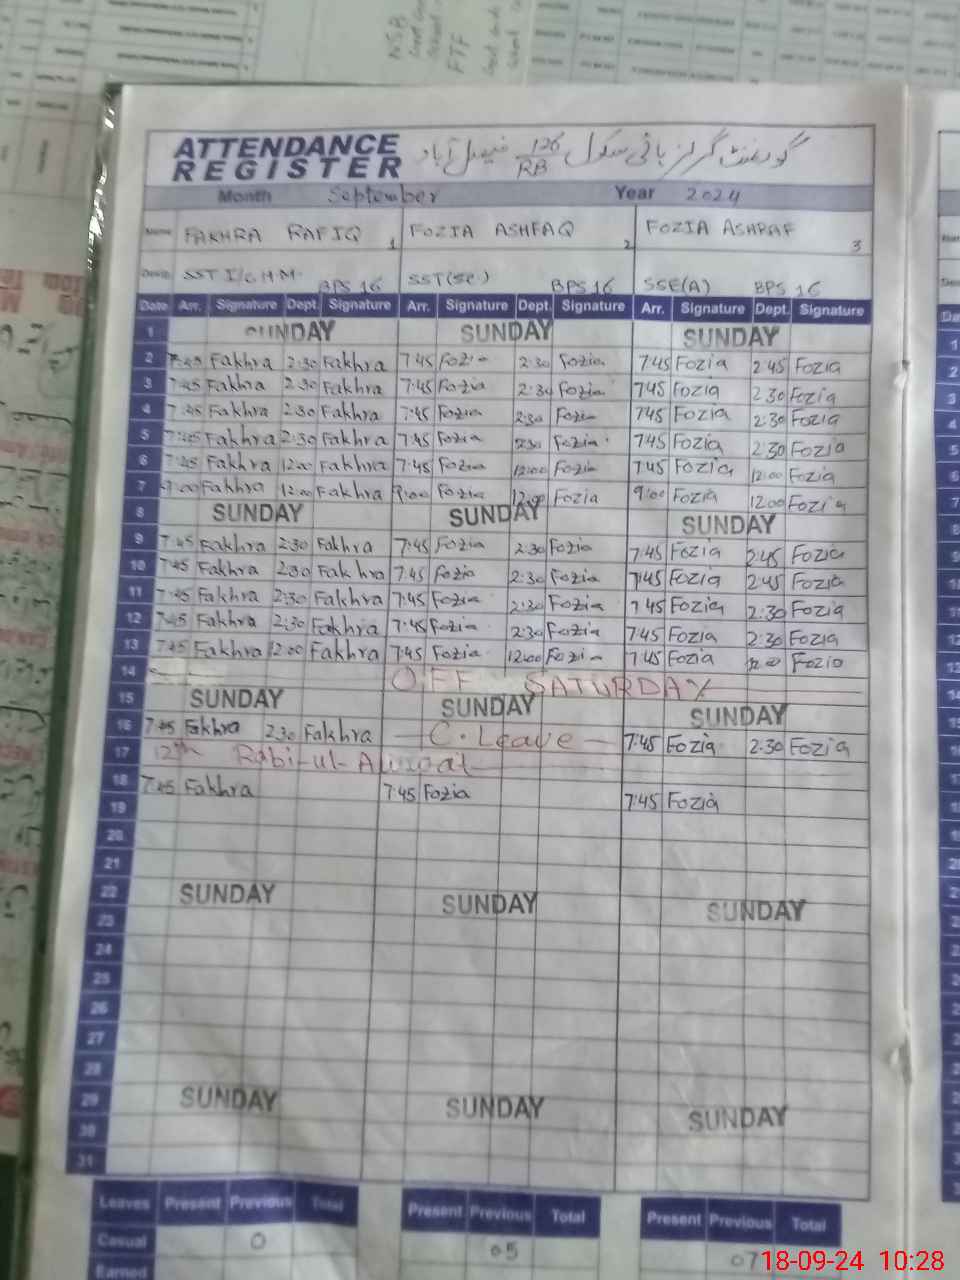 ATTENDANCE REGISTER گورنمنٹ گرلز ہائی سکول 126/RB فیصل آباد
Month September Year 2024
Name FAKHRA RAFIQ 1 FOZIA ASHFAQ 2 FOZIA ASHRAF 3
SST I/C H.M. BPS 16 SST(SC) BPS 16 SSE(A) BPS 16
Date Arr. Signature Dept. Signature Arr. Signature Dept. Signature Arr. Signature Dept. Signature
1 SUNDAY SUNDAY SUNDAY
2 7:45 Fakhra 2:30 Fakhra 7:45 Fozia 2:30 Fozia 7:45 Fozia 2 45 Fozia
3 7:45 Fakhra 2:30 Fakhra 7:45 Fozia 2:30 Fozia 7:45 Fozia 2 30 Fozia
4 7:45 Fakhra 2:30 Fakhra 7:45 Fozia 2:30 Fozia 7:45 Fozia 2:30 Fozia
5 7:45 Fakhra 2:30 Fakhra 7:45 Fozia 2:30 Fozia 7:45 Fozia 2:30 Fozia
6 7:45 Fakhra 12:00 Fakhra 7:45 Fozia 12:00 Fozia 7:45 Fozia 12:00 Fozia
7 9:00 Fakhra 12:00 Fakhra 9:00 Fozia 12:00 Fozia 9:00 Fozia 12:00 Fozia
8 SUNDAY SUNDAY SUNDAY
9 7:45 Fakhra 2:30 Fakhra 7:45 Fozia 2:30 Fozia 7:45 Fozia 2:45 Fozia
10 7:45 Fakhra 2:30 Fakhra 7:45 Fozia 2:30 Fozia 7:45 Fozia 2:45 Fozia
11 7:45 Fakhra 2:30 Fakhra 7:45 Fozia 2:30 Fozia 7:45 Fozia 2:30 Fozia
12 7:45 Fakhra 2:30 Fakhra 7:45 Fozia 2:30 Fozia 7:45 Fozia 2:30 Fozia
13 7:45 Fakhra 12:00 Fakhra 7:45 Fozia 12:00 Fozia 7:45 Fozia 12:00 Fozia
14 OFF SATURDAY
15 SUNDAY SUNDAY SUNDAY
16 7:45 Fakhra 2:30 Fakhra C. Leave 7:45 Fozia 2:30 Fozia
17 12th Rabi-ul-Awwal
18 7:45 Fakhra 7:45 Fozia 7:45 Fozia
19
20
21
22 SUNDAY SUNDAY SUNDAY
23
24
25
26
27
28
29 SUNDAY SUNDAY SUNDAY
30
31
Leaves Present Previous Total Present Previous Total Present Previous Total
Casual 0 05 07
Earned
18-09-24 10:28